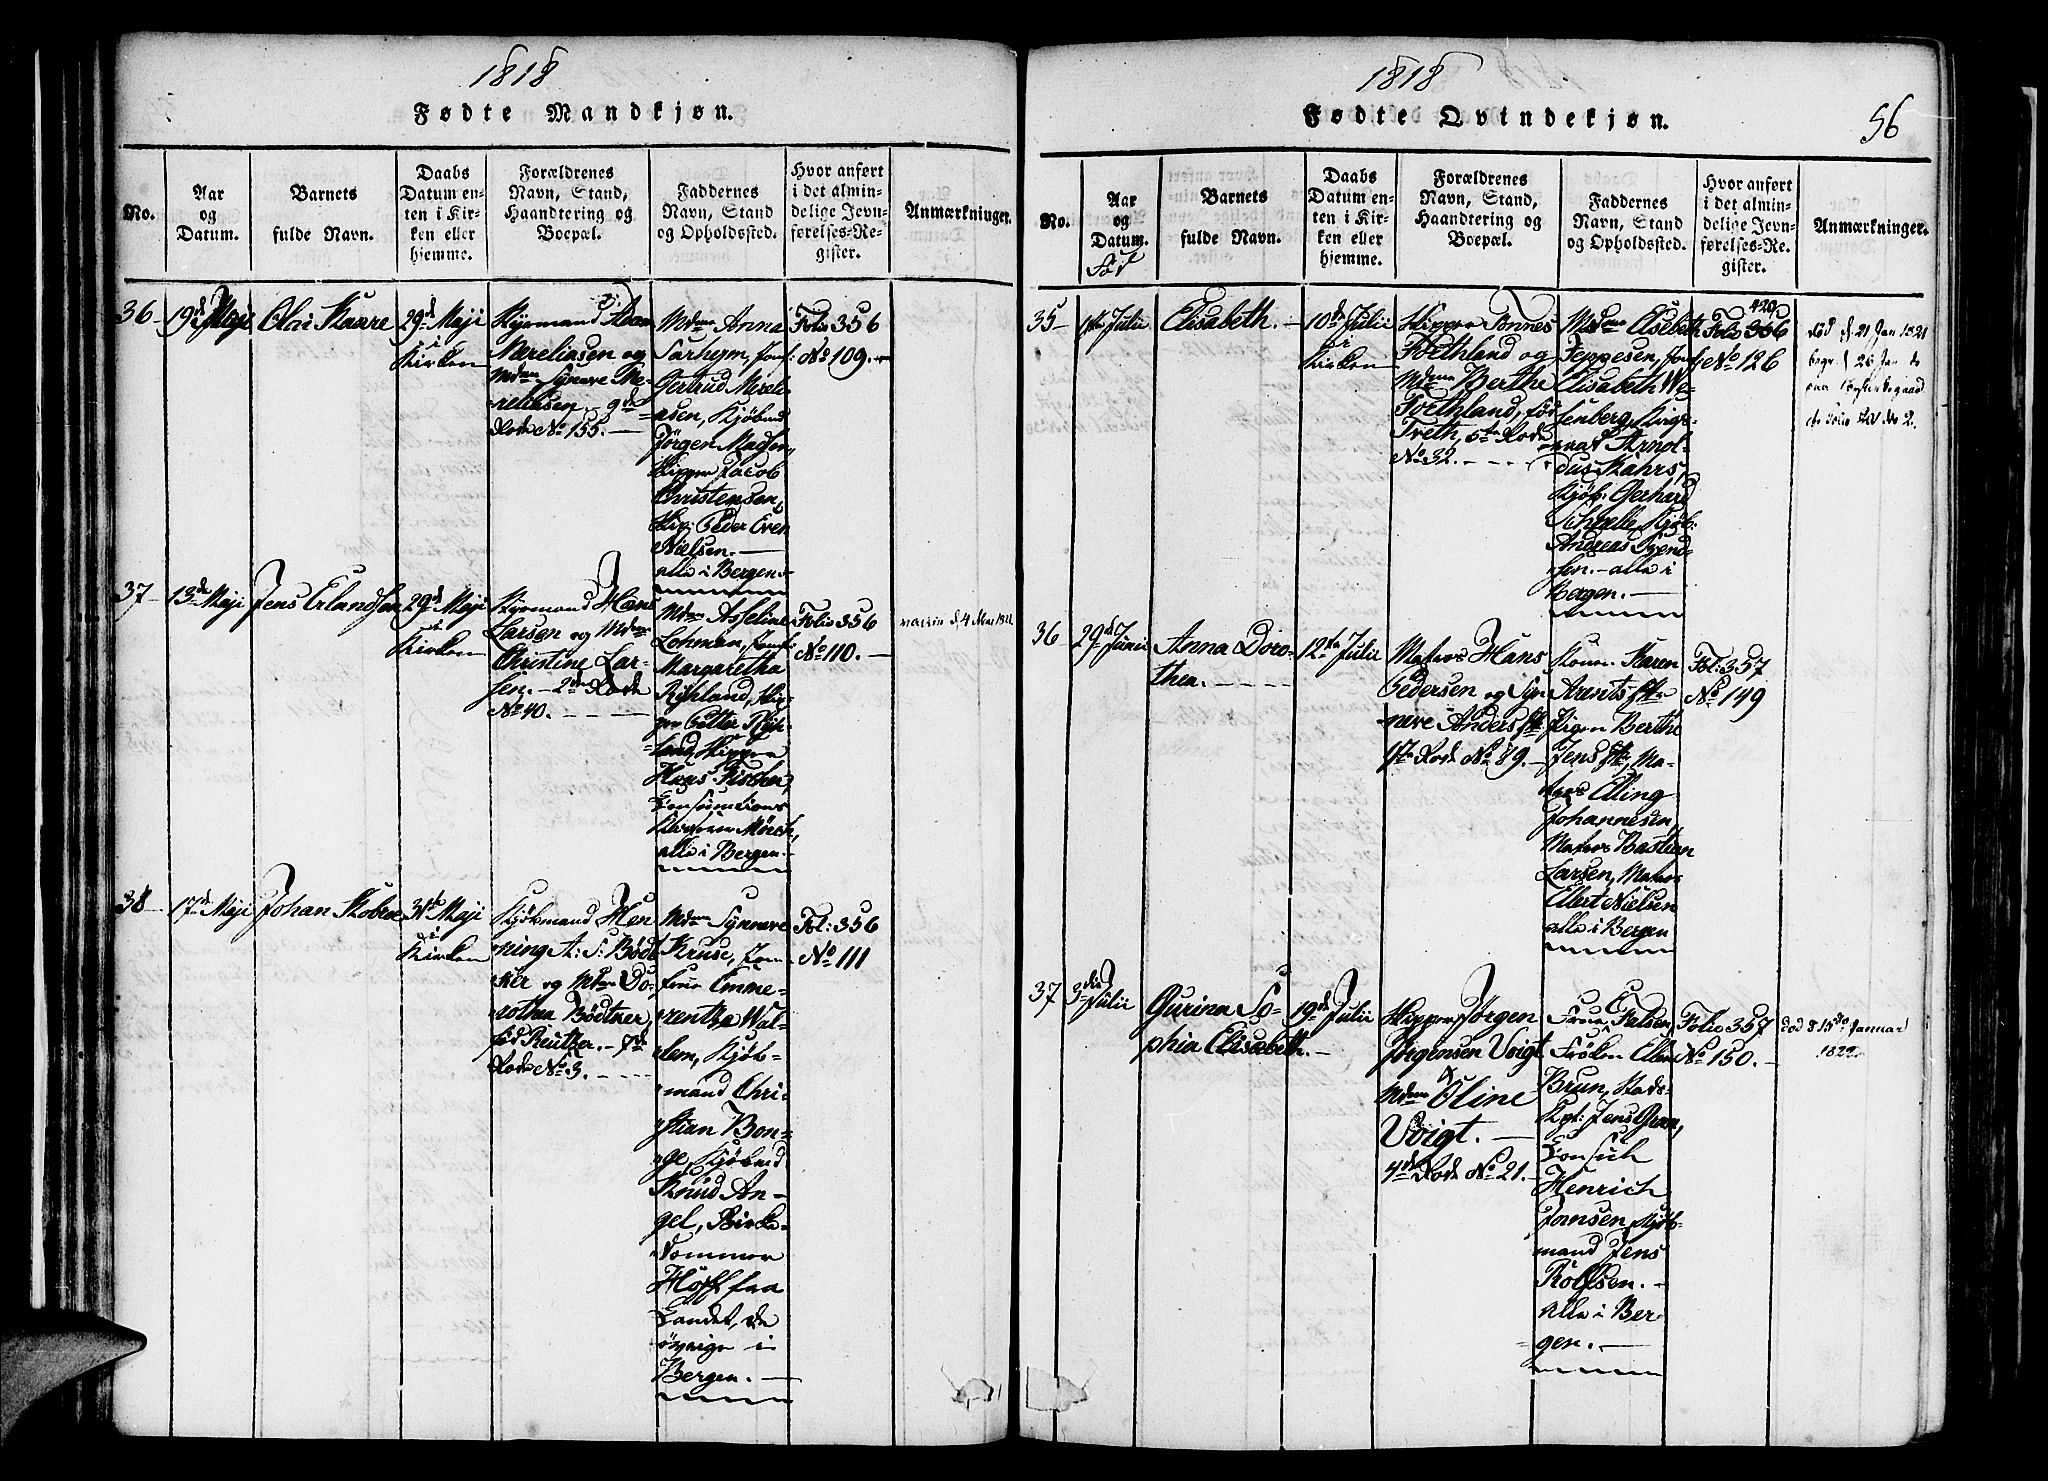 1818
Fødte Mandkjøn.
No.
Aar
og
Datum.
Barnets
fulde Navn.
Daabs
Datum en-
ten i Kir-
ken eller
hjemme.
Forældrenes
Navn, Stand,
Haandtering og
Boepæl.
Faddernes
Navn, Stand
og Opholdssted.
Hvor anført
i det almin-
delige Jevn-
førelses-Re-
gister.
Anmærkninger.
36
19de Maji
Olai Skaare
29de Maji
i
Kirken
Styrmand
og
Mdme Synave Me-
reliasen 9de
Rode No 155.
Mdme Anna
Sarheym, Jomf:
Gertrud
asen, Kjøbmd
Jørgen Madsen,
Skipper Jacob
Christensen,
Skip: Peder Even
Nielsen.
alle i Bergen
Folio 356
No 109.
37
13de Maji
Jens Erlandsen
29de Maji
i
Kirken
Styrmand Hans
Larsen og Mdme
Christine Lar-
sen. 2de Rode
No 40.
Mdme Asseline
Lohman, Jomf:
Margaretha
Ryhland, Skip-
per Petter Ryh-
land, Skipper
Hans Fischer,
Consumtions
Mørch,
alle i Bergen.
Folio 356
No 110.
vaccin d. 4
38
17de Maji
Johan Skobroe
31de Maji
i
Kirken
Kjøbmand Hen
ning A: S: Bødt
ker og Mdme Do-
rothea Bødtker,
fød Reutzer. 7de
Rode No 3.
Mdme Synneve
Kruse, Jom
frue Emme-
rentza Wal-
lem, Kjøb-
mand Chri-
stian Bon-
ge, Kjøbmd
Knud An-
gel, Birke-
dommer
Høft paa
Landet, de
øvrige i
Bergen.
Fol: 356
No 111
1818
Fødte Qvindekjøn.
56
No.
Aar
og
Datum.
Fød
Barnets
fulde Navn.
Daabs
Datum en-
ten i Kir-
ken eller
hjemme.
Forældrenes
Navn, Stand,
Haandtering og
Boepæl.
Faddernes
Navn, Stand
og Opholdssted.
Hvor anført
i det almin-
delige Jevn-
førelses-Re-
gister.
Anmærkninger.
35
1ste Julii
Elisabeth.
10de Julii
i
Kirken
Skipper Tønnes
Foethland og
Mdme Berthe
Foethland, fød
Treth, 6te Rode
No 32.
Mdme Elsebeth
Jeppesen, Jomf:
Elisabeth We-
senberg, Krigs-
raad Arnol-
dus Kahrs,
Kjøb: Gerhard
Kjøb:
Andreas Svend-
sen. alle i
Bergen.
420
Folio 366
No 126
død d. 21 Jan 1821
begr d 26 Jan do
paa
36
29de Junii
Anna Doro-
thea.
12te Julii
Matros Hans
Pedersen og Syn
neve Andersdtr
17de Rode No 89.
Konen Karen
Arentsdtr
Pigen Berthe
Jensdtr, Ma-
tros Elling
Johannesen,
Matros Bastian
Larsen, Matros
Elert Nielsen
alle i Bergen
Fol: 357
No 149
37
3die Julii
Gurina So-
phia Elisabeth.
19de Julii
Skipper Jørgen
Jørgensen Voigt
&
Mdme Oline
Voigt.
4de Rode No 21.
Frue C Falsen,
Frøken Ellen
Brun, Stads-
Kpt: Jens Gran,
Consul
Henrich
Jansen, Kjøb-
mand Jens
Rolfsen.
alle i Ber-
gen.
Folio 357
No 150.
død d 15de Januar
1822